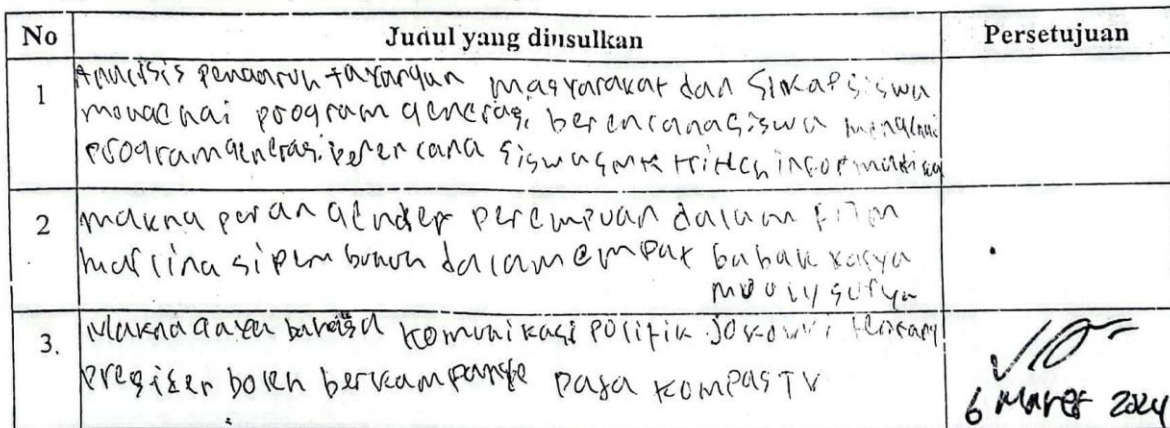 No Judul yang diusulkan Persetujuan
1 Analisis pengaruh tayangan masyarakat dan sikap siswa
mengenai program generasi berencana siswa mengenai
program generasi berencana siswa smk tritech informatika
2 makna peran gender perempuan dalam film
marlina si pembunuh dalam empat babak karya
mouly surya
3. Makna gaya bahasa komunikasi politik jokowi tentang
presiden boleh berkampanye pada kompas TV
6 Maret 2024